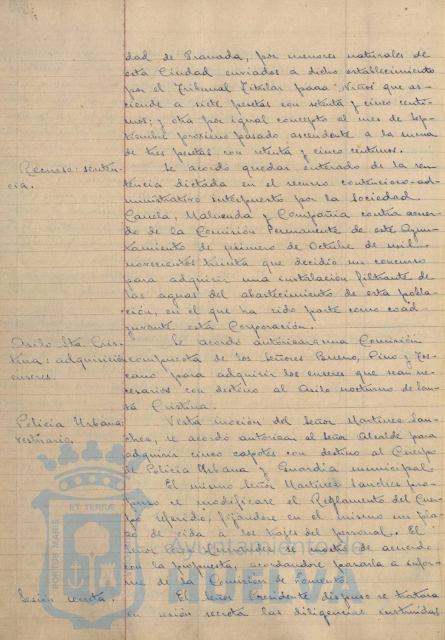 dad de Granada, por menores naturales de
esta Ciudad enviados a dicho establecimiento
por el Tribunal Titular para Niños que as-
ciende a siete pesetas con setenta y cinco cénti-
mos; y otra por igual concepto al mes de Sep-
tiembre próximo pasado ascendente a la suma
de tres pesetas con setenta y cinco céntimos.
Recurso: senten-
cia.
Se acordó quedar enterado de la sen-
tencia dictada en el recurso contencioso-ad-
ministrativo interpuesto por la Sociedad
Canela, Maluenda y Compañia contra acuer-
do de la Comisión Permanente de este Ayun-
tamiento de primero de Octubre de mil
novecientos treinta que decidió un concurso
para adquirir una instalación filtrante de
las aguas del abastecimiento de esta pobla-
ción, en el que ha sido parte como coad-
yuvante esta Corporación.
Asilo Sta. Cris-
tina: adquisición
enseres.
Se acordó autorizar a una Comisión
compuesta de los Señores Bueno, Pino y Tos-
cano para adquirir los enseres que sean ne-
cesarios con destino al Asilo nocturno de San-
ta Cristina.
Policia Urbana:
vestuario.
Vista moción del Señor Martinez San-
chez, se acordó autorizar al Señor Alcalde para
adquirir cinco capotes con destino al Cuerpo
de Policia Urbana y Guardia municipal.
El mismo Señor Martinez Sanchez pro-
puso se modificase el Reglamento del Cuer-
po referido, fijándose en el mismo un pla-
zo de vida a los trajes del personal. El
Señor Hernandez se mostró de acuerdo
con la propuesta, acordándose pasarla a infor-
me de la Comisión de Fomento.
Sesión secreta.
El Señor Presidente dispuso se tratara
en sesión secreta las diligencias instruidas
PORTUS MARIS
ET TERRÆ
Ayuntamiento de
HUELVA